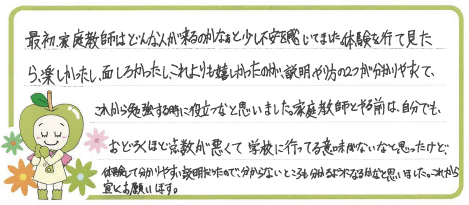 最初、家庭教師はどんな人が来るのかなぁと少し不安を感じてました。体験を行て見た
ら、楽しかったし、面しろかったし、これよりも嬉しかったのが、説明、やり方の2つが分かりやすくて、
これから勉強する時に役立つなと思いました。家庭教師とやる前は、自分でも、
おどろくほど点数が悪くて学校に行ってる意味がないなと思ったけど、
体験して分かりやすい説明だったので、分からないところも分かるようになるかなと思いました。これから
宜しくお願いします。